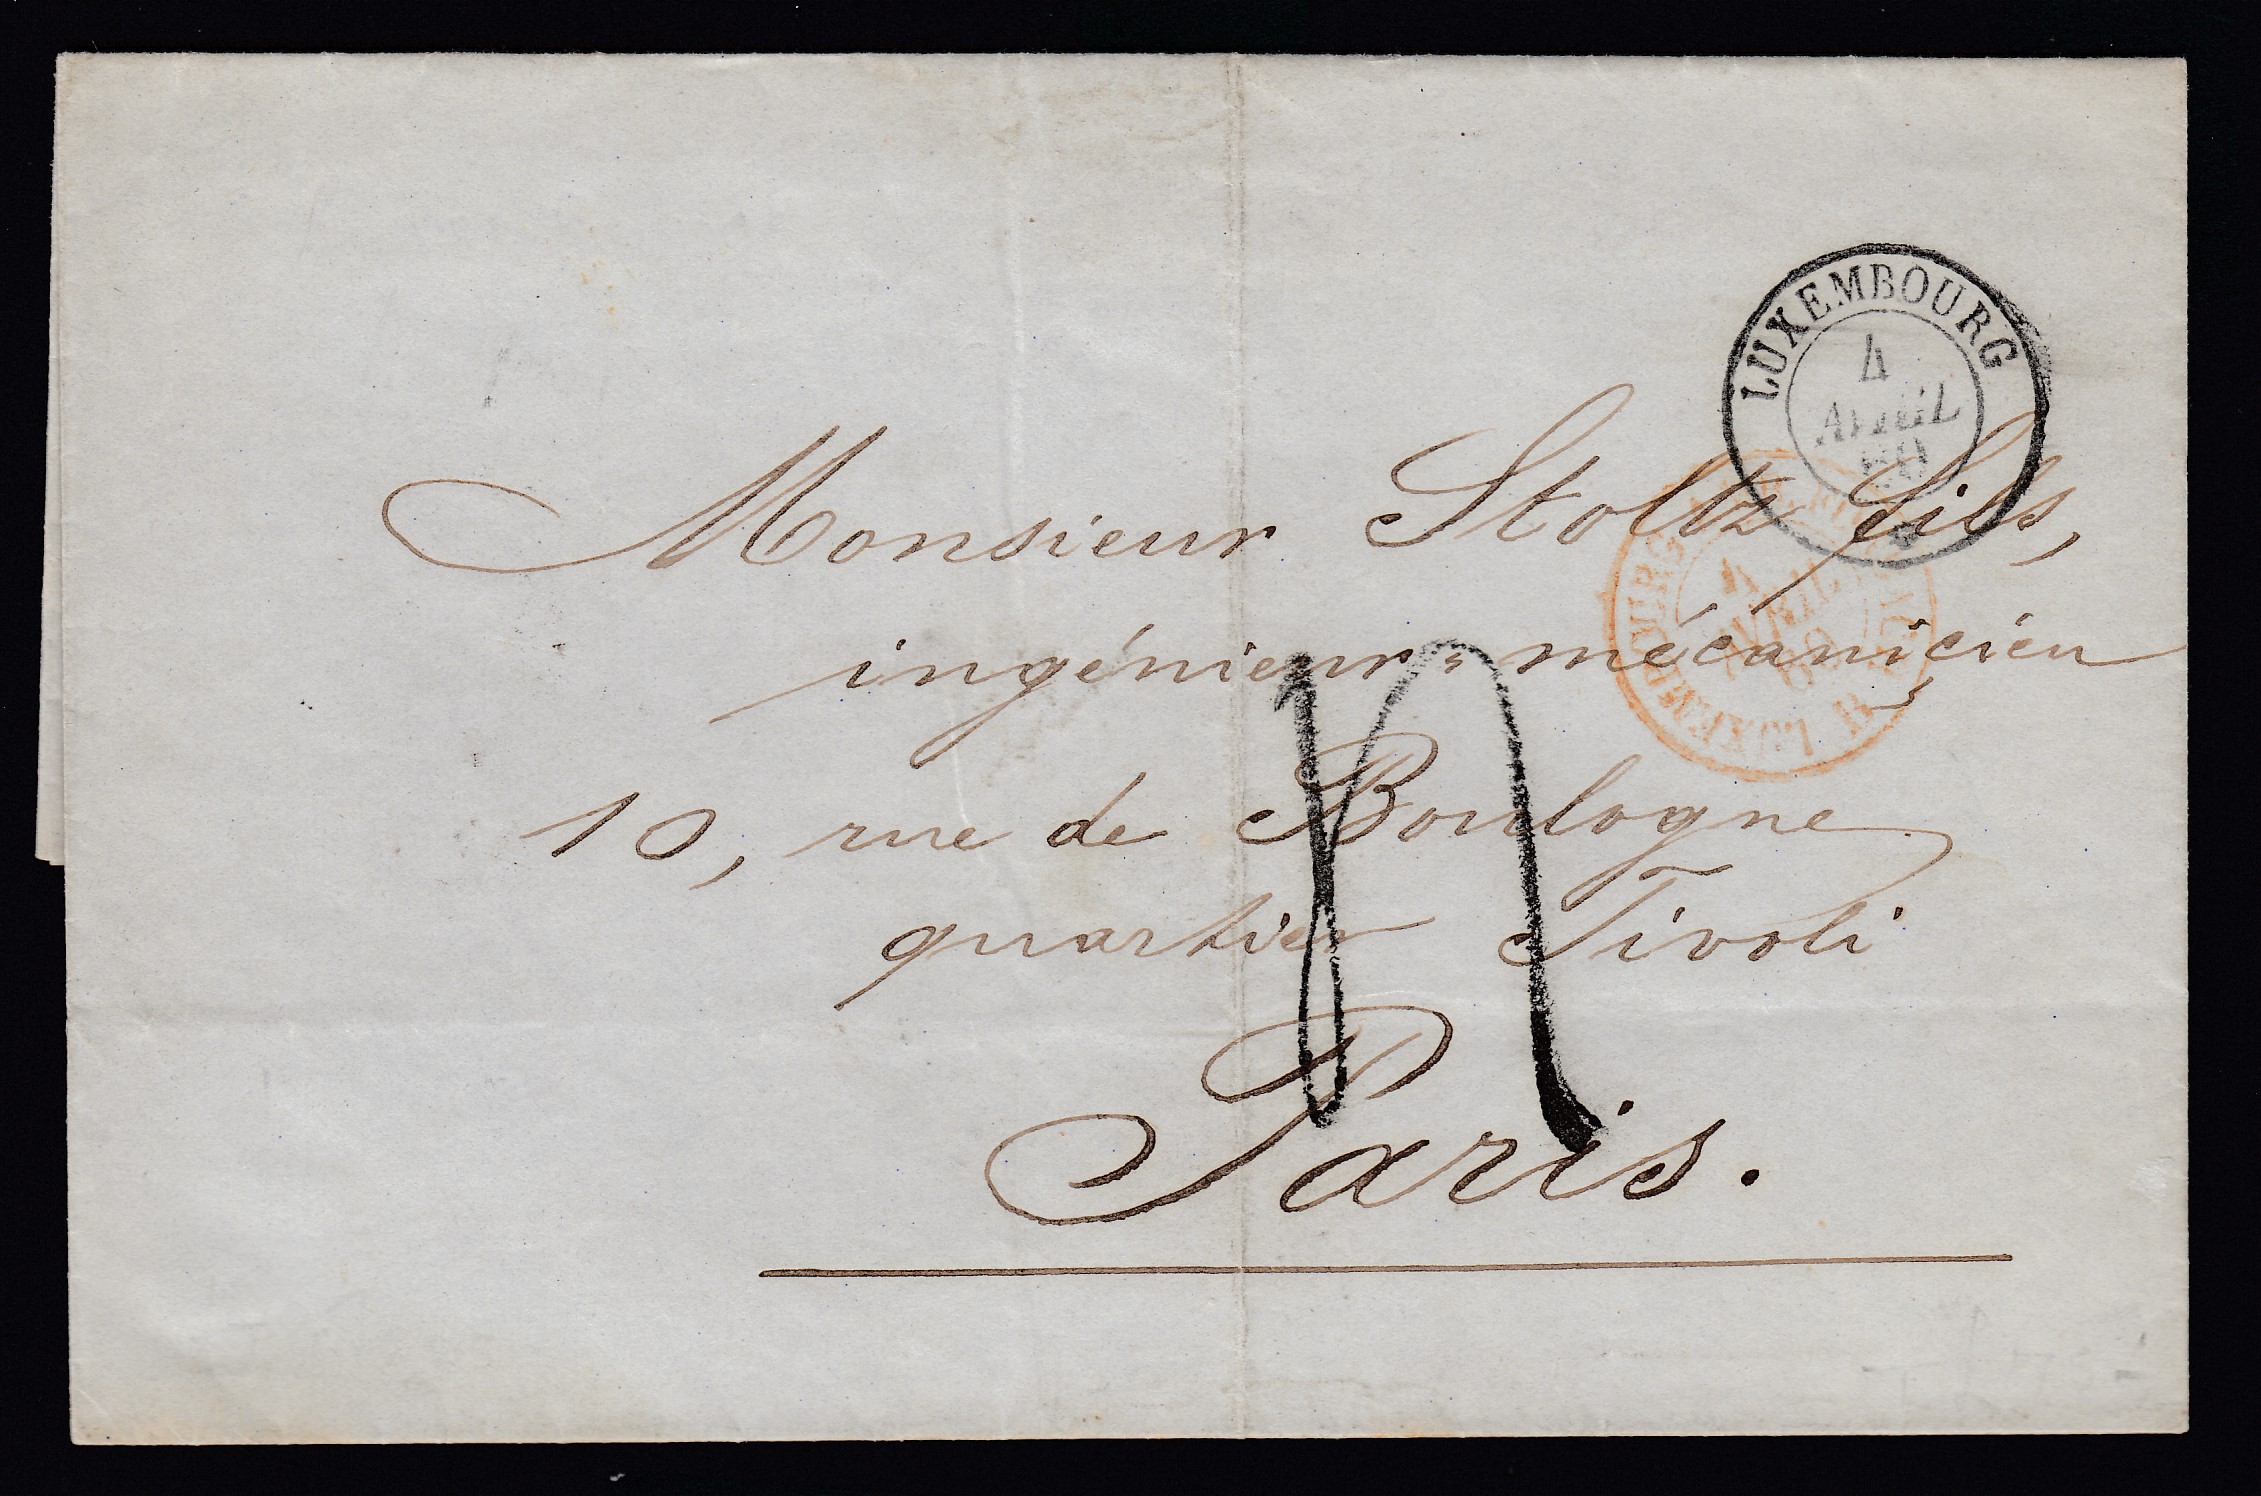 LUXEMBOURG
4
AVRIL
60
Monsieur Stoltz fils,
ingénieur-mécanicien
10, rue de Boulogne
quartier Tivoli
Paris.
LUXEMBOURG
4
AVRIL
60
B